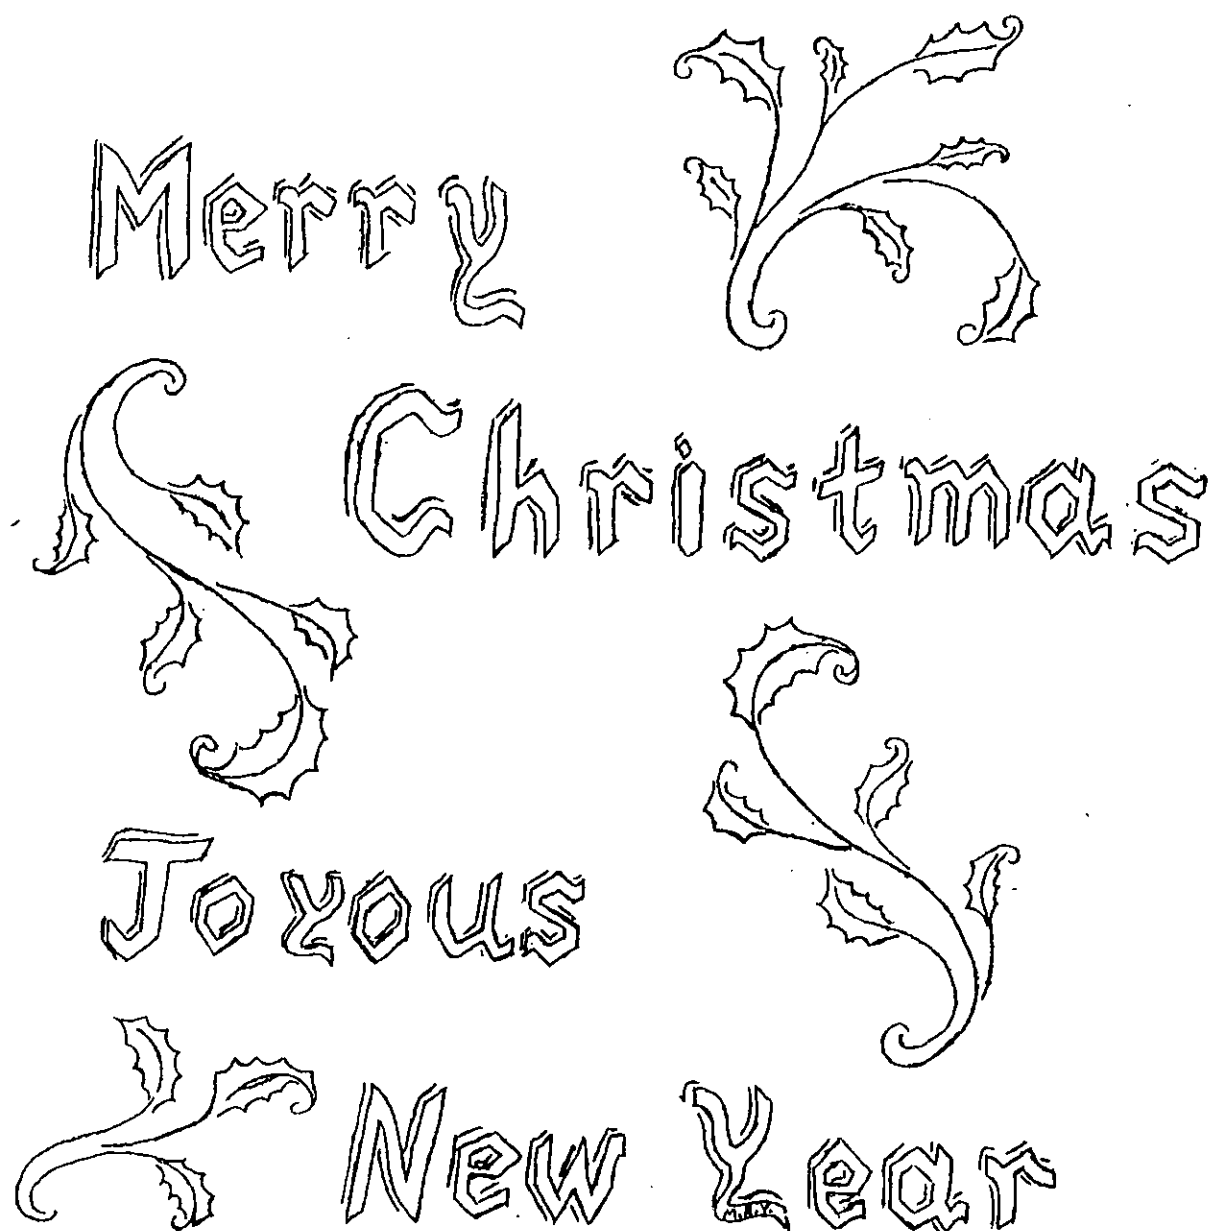 Merry
Christmas
Joyous
New Year